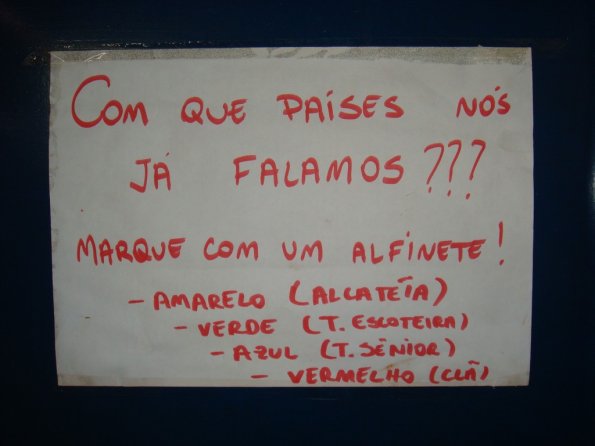 COM QUE PAÍSES NÓS
JÁ FALAMOS???
MARQUE COM UM ALFINETE!
- AMARELO (ALCATÉIA)
- VERDE (T. ESCOTEIRA)
- AZUL (T. SÊNIOR)
- VERMELHO (CLÃ)